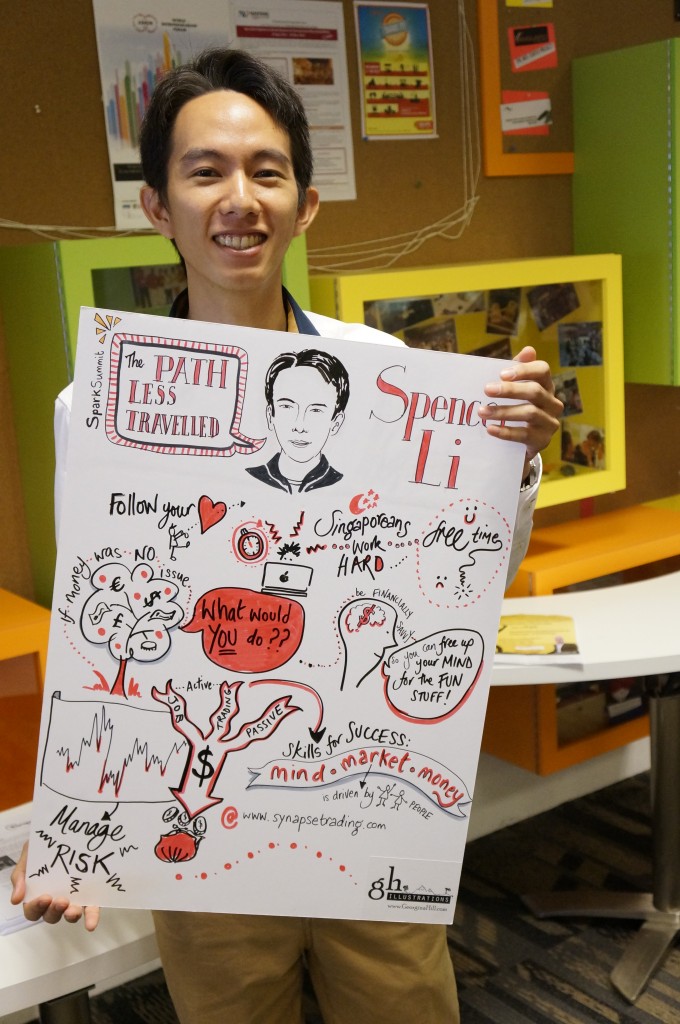 SparkSummit
The PATH
LESS
TRAVELLED
Spencer
Li
Follow your
Singaporeans
WORK
HARD
free time
if money was no issue
What would
YOU do ??
be FINANCIALLY
SAVVY
So you can free up
your MIND
for the FUN
STUFF!
JOB
Active
TRADING
PASSIVE
$
Skills for SUCCESS:
mind • market • money
is driven by PEOPLE
Manage
RISK
@ www.synapsetrading.com
gh
ILLUSTRATIONS